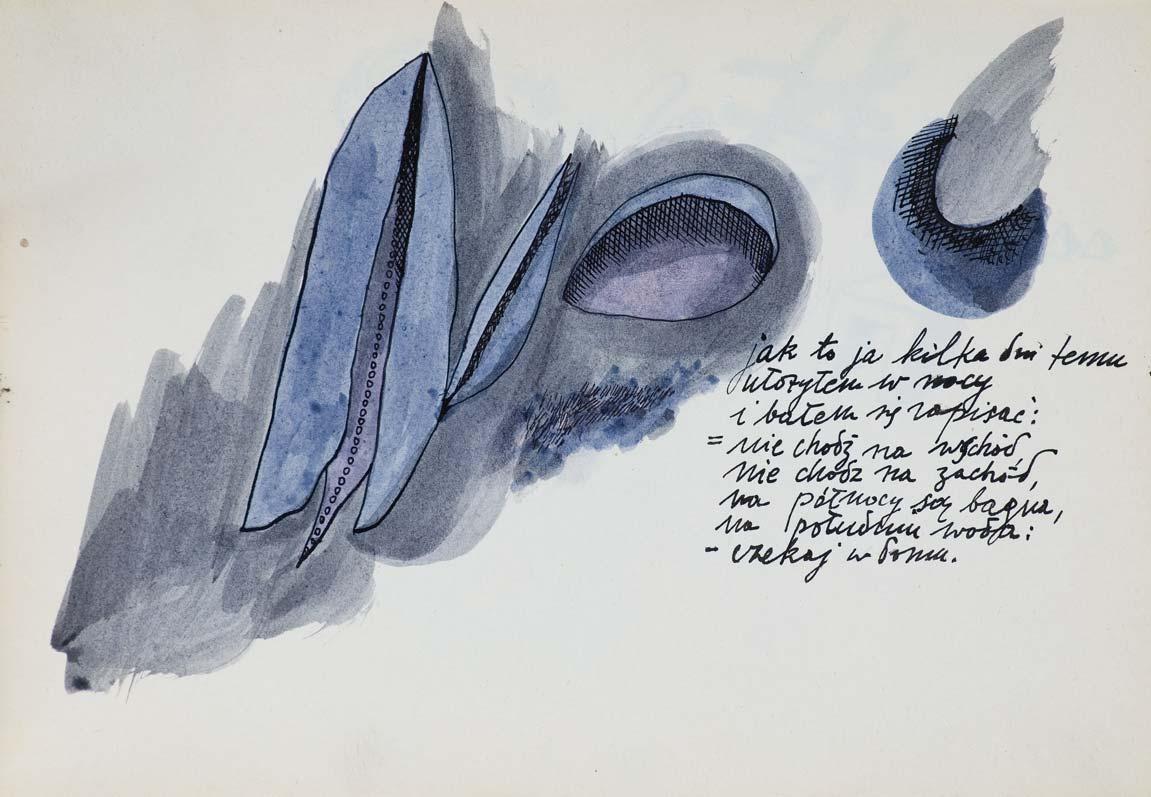 jak to ja kilka dni temu
ułożyłem w nocy
i bałem się zapisać:
= nie chodź na wschód
nie chodź na zachód,
na północy są bagna,
na południu woda:
- czekaj w domu.